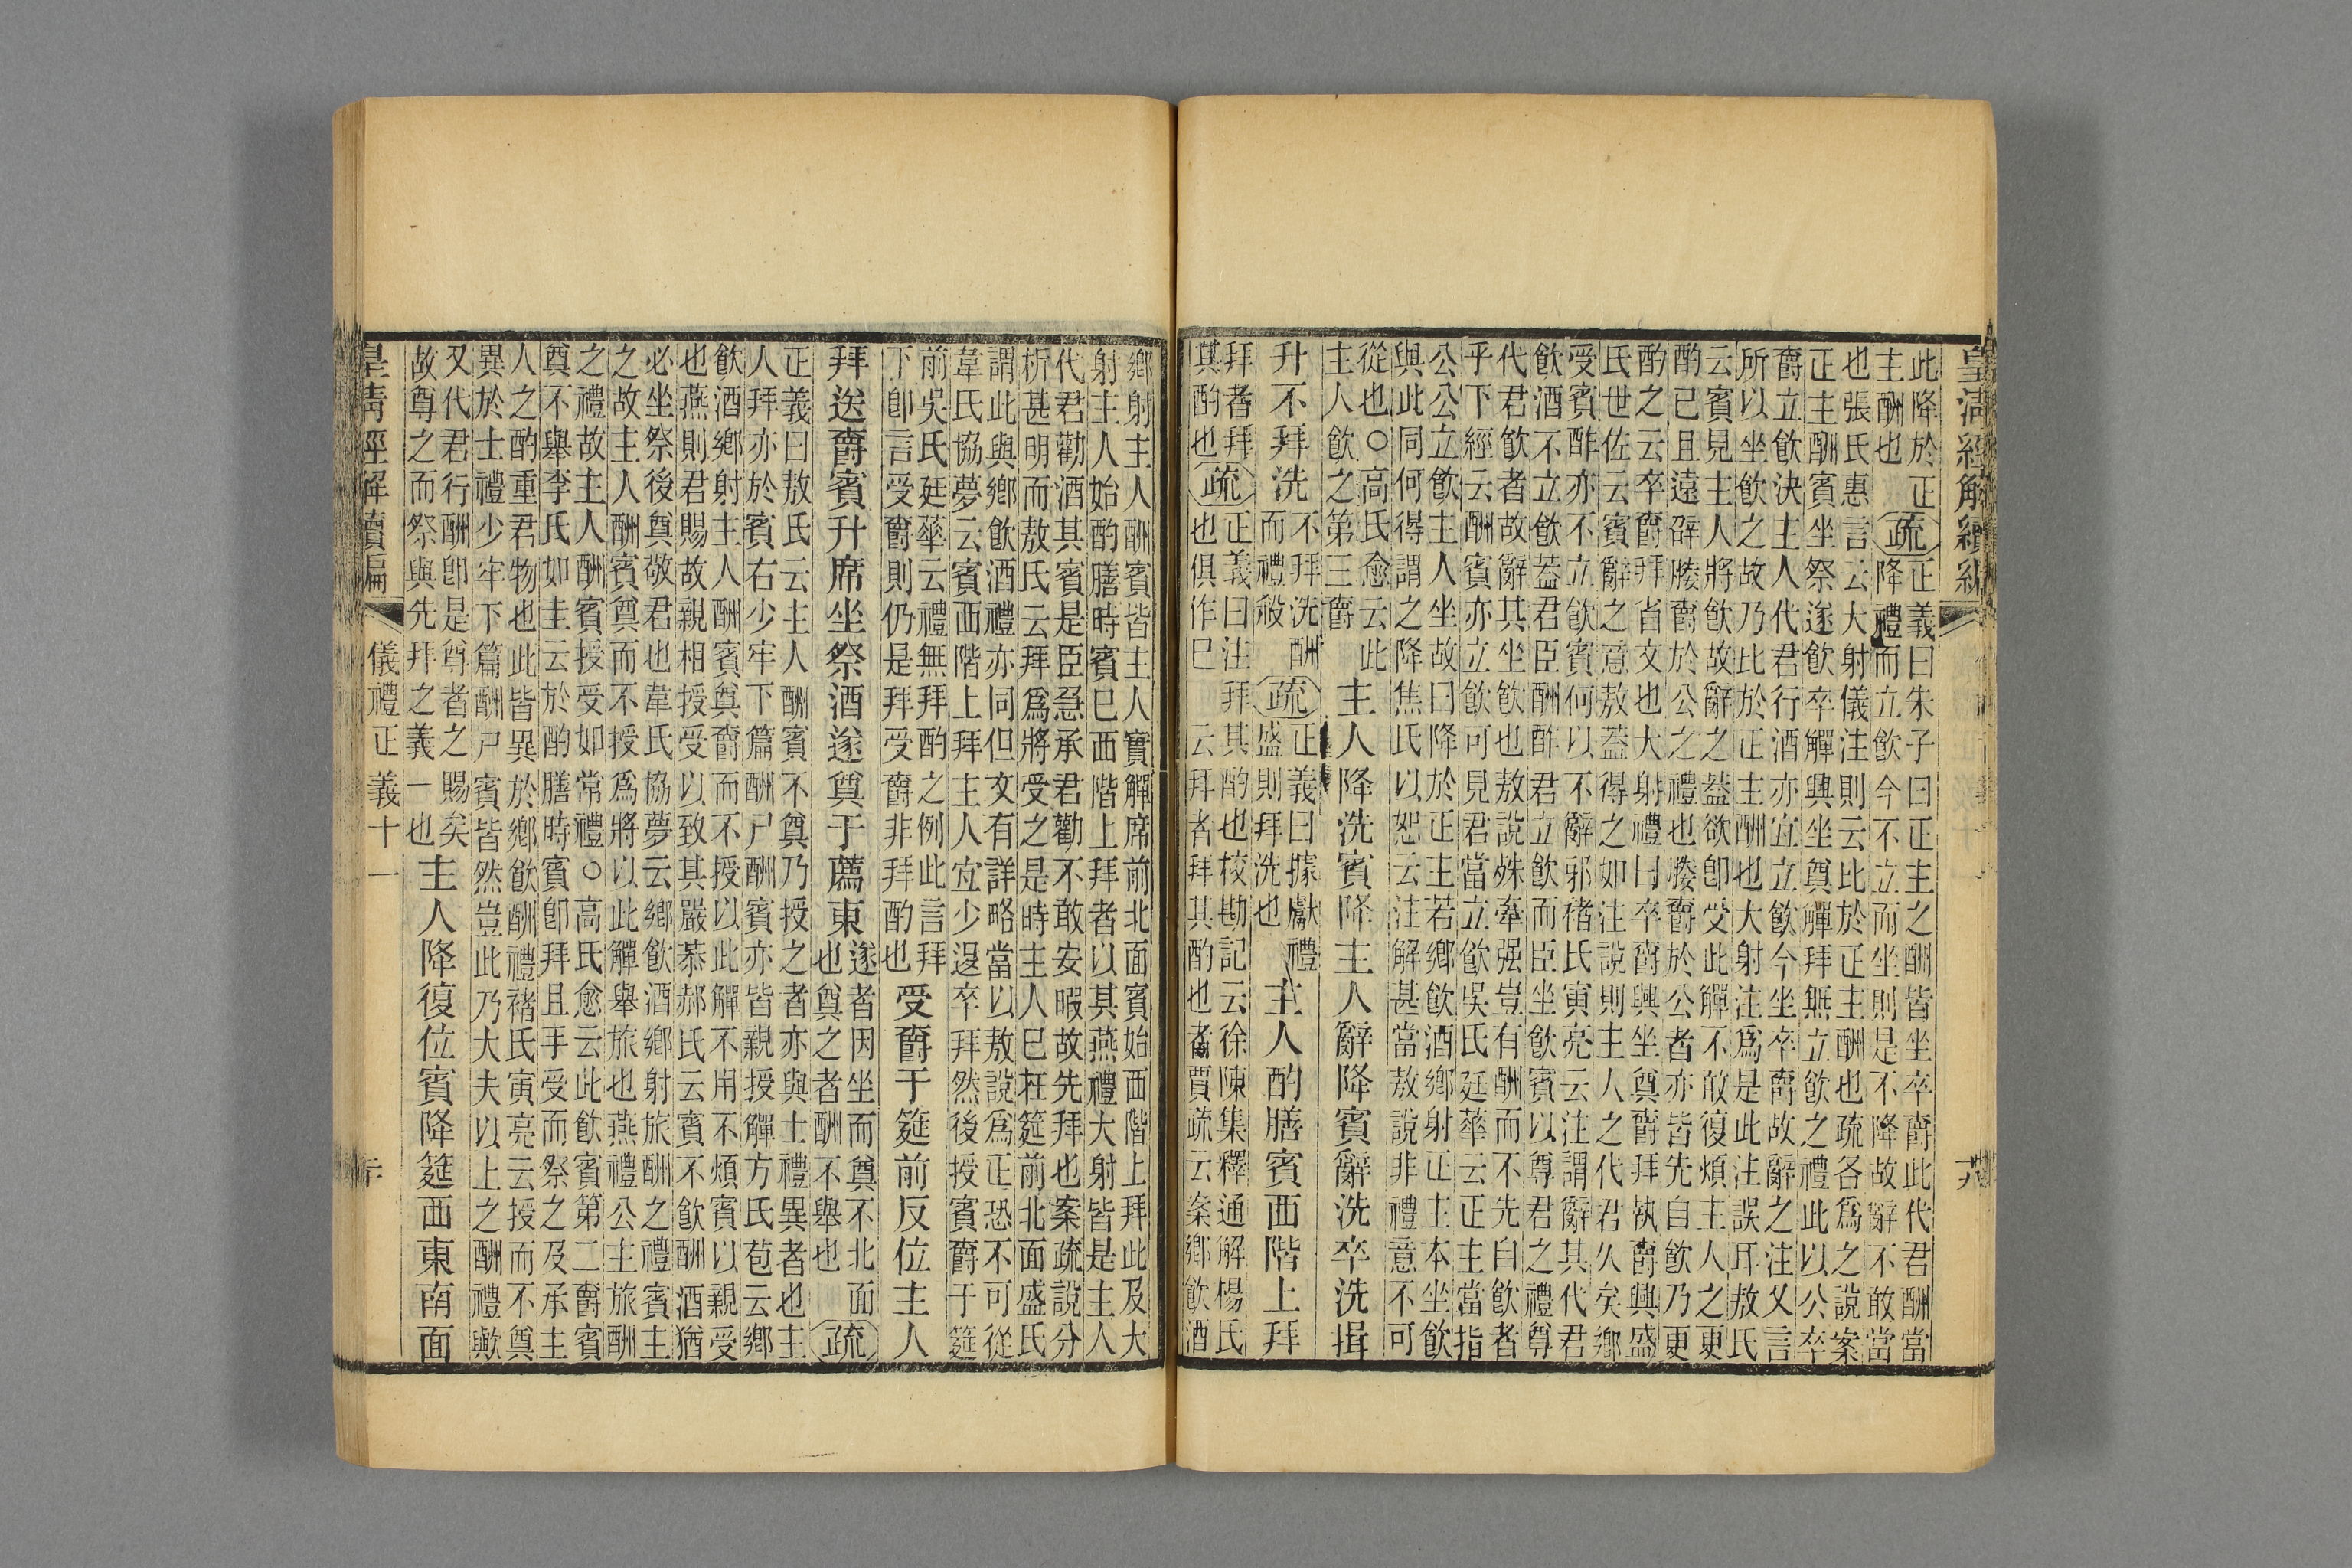 皇清經解續編
此降於正
主酬也
疏
正義曰朱子曰正主之酬皆坐卒爵此代君酬當
降禮而立飲今不立而坐則是不降故辭不敢當
也張氏惠言云大射儀注則云此於正主酬也疏各爲之說案
正主酬賓坐祭遂飲卒觶興坐奠觶拜無立飲之禮此以公卒
爵立飲決主人代君行酒亦宜立飲今坐卒爵故辭之注又言
所以坐飲之故乃比於正主酬也大射注爲是此注誤耳敖氏
云賓見主人將飲故辭之蓋欲卽受此觶不敢復煩主人之更
酌已且遠辟媵爵於公之禮也媵爵於公者亦皆先自飲乃更
酌之云卒爵拜省文也大射禮曰卒爵興坐奠爵拜執爵興盛
氏世佐云賓辭之意敖蓋得之如注說則主人之代君久矣鄉
受賓酢亦不立飲賓何以不辭邪褚氏寅亮云注謂辭其代君
飲酒不立飲蓋君臣酬酢君立飲而臣坐飲賓以尊君之禮尊
代君飲者故辭其坐飲也敖說殊牽强豈有酬而不先自飲者
乎下經云酬賓亦立飲可見君當立飲吳氏廷華云正主當指
公公立飲主人坐故曰降於正主若鄉飲酒鄉射正主本坐飲
與此同何得謂之降焦氏以恕云注解甚當敖說非禮意不可
從也○高氏愈云此
主人飲之第三爵
主人降洗賓降主人辭降賓辭洗卒洗揖
升不拜洗
不拜洗酬
而禮殺
疏
正義曰據獻禮
盛則拜洗也
主人酌膳賓西階上拜
拜者拜
其酌也
疏
正義曰注拜其酌也校勘記云徐陳集釋通解楊氏
也俱作巳云拜者拜其酌也者賈疏云案鄉飲酒
鄉射主人酬賓皆主人實觶席前北面賓始西階上拜此及大
射主人始酌膳時賓巳西階上拜者以其燕禮大射皆是主人
代君勸酒其賓是臣急承君勸不敢安暇故先拜也案疏說分
析甚明而敖氏云拜爲將受之是時主人巳在筵前北面盛氏
謂此與鄉飲酒禮亦同但文有詳略當以敖說爲正恐不可從
韋氏協夢云賓西階上拜主人宜少退卒拜然後授賓爵于筵
前吳氏廷華云禮無拜酌之例此言拜
下卽言受爵則仍是拜受爵非拜酌也
受爵于筵前反位主人
拜送爵賓升席坐祭酒遂奠于薦東
遂者因坐而奠不北面
也奠之者酬不舉也
疏
正義曰敖氏云主人酬賓不奠乃授之者亦與士禮異者也主
人拜亦於賓右少牢下篇酬尸酬賓亦皆親授觶方氏苞云鄉
飲酒鄉射主人酬賓奠爵而不授以此觶不用不煩賓以親受
也燕則君賜故親相授受以致其嚴恭郝氏云賓不飲酬酒猶
必坐祭後奠敬君也韋氏協夢云鄉飲酒鄉射旅酬之禮賓主
之故主人酬賓奠而不授爲將以此觶舉旅也燕禮公主旅酬
之禮故主人酬賓授受如常禮○高氏愈云此飲賓第二爵賓
奠不舉李氏如圭云於酌膳時賓卽拜且手受而祭之及承主
人之酌重君物也此皆異於鄉飲酬禮褚氏寅亮云授而不奠
異於士禮少牢下篇酬尸賓皆然豈此乃大夫以上之酬禮歟
又代君行酬卽是尊者之賜矣
故尊之而祭與先拜之義一也
主人降復位賓降筵西東南面
皇淸經解續編
儀禮正義十一